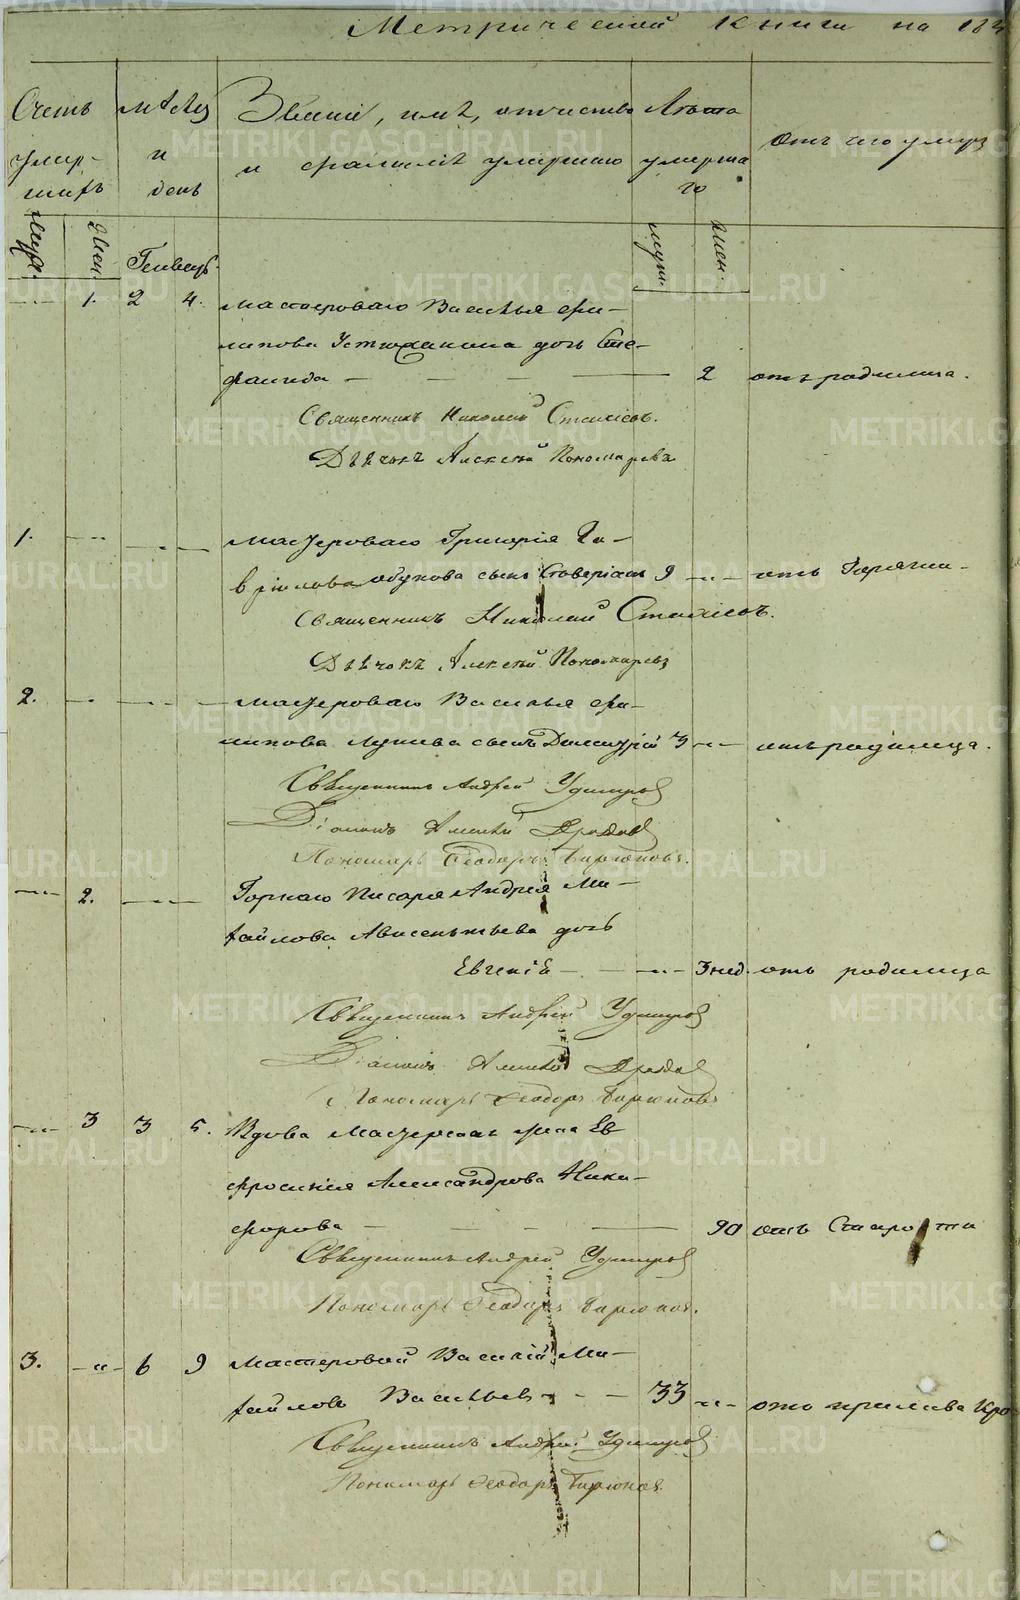 Метрической книги на 184
Счетъ умер-шихъ
Мѣсяц и день
Званіе, имя, отчество и фамилія умершаго
Лѣта умерша го
Отъ чего умерз
Муж.
Жен.
Генварь.
муж.
жен.
1. 2 4. мастероваго Василья Фи-
липова Устюжанина дочь Сте-
фанида — 2 отъ родимца.
Священникъ Николай
Дьячокъ Алексѣй Пономаревъ
1. мастероваго Григорія Га-
врилова Обухова сынъ 9 отъ Горячки
Священникъ Николай
Дьячокъ Алексѣй Пономаревъ
2. мастероваго Василья Фи-
липова сынъ Димитрій 3 отъ родимца.
Священникъ Андрей Удинцов
Діаконъ Алексѣй
Пономарь Феодоръ Бирюковъ.
2. Горнаго Писаря Андрея Ми-
хайлова дочь
Евгенія — 3 нед. отъ родимца
Священникъ Андрей Удинцов
Діаконъ Алексѣй
Пономарь Феодоръ Бирюковъ
3 3 5. Вдова Мастерская жена Ев
фросинія Александрова Ники-
форова — 90 отъ Старости
Священникъ Андрей Удинцов
Пономарь Феодоръ Бирюков.
3. 6 9 Мастеровой Василій Ми-
хайловъ Васильев 33 отъ прилива кро
Священникъ Андрей Удинцов
Пономарь Феодоръ Бирюков
METRIKI.GASO-URAL.RU